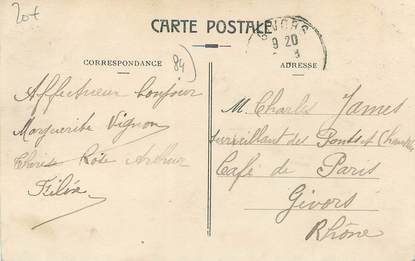 20+
CARTE POSTALE
GIVORS
9 20
CORRESPONDANCE
84)
ADRESSE
Affectueux bonjour
Marguerite Vignon
Rose Arthur
Félix
M. Charles James
surveillant des Ponts et
Café de Paris
Givors
Rhône